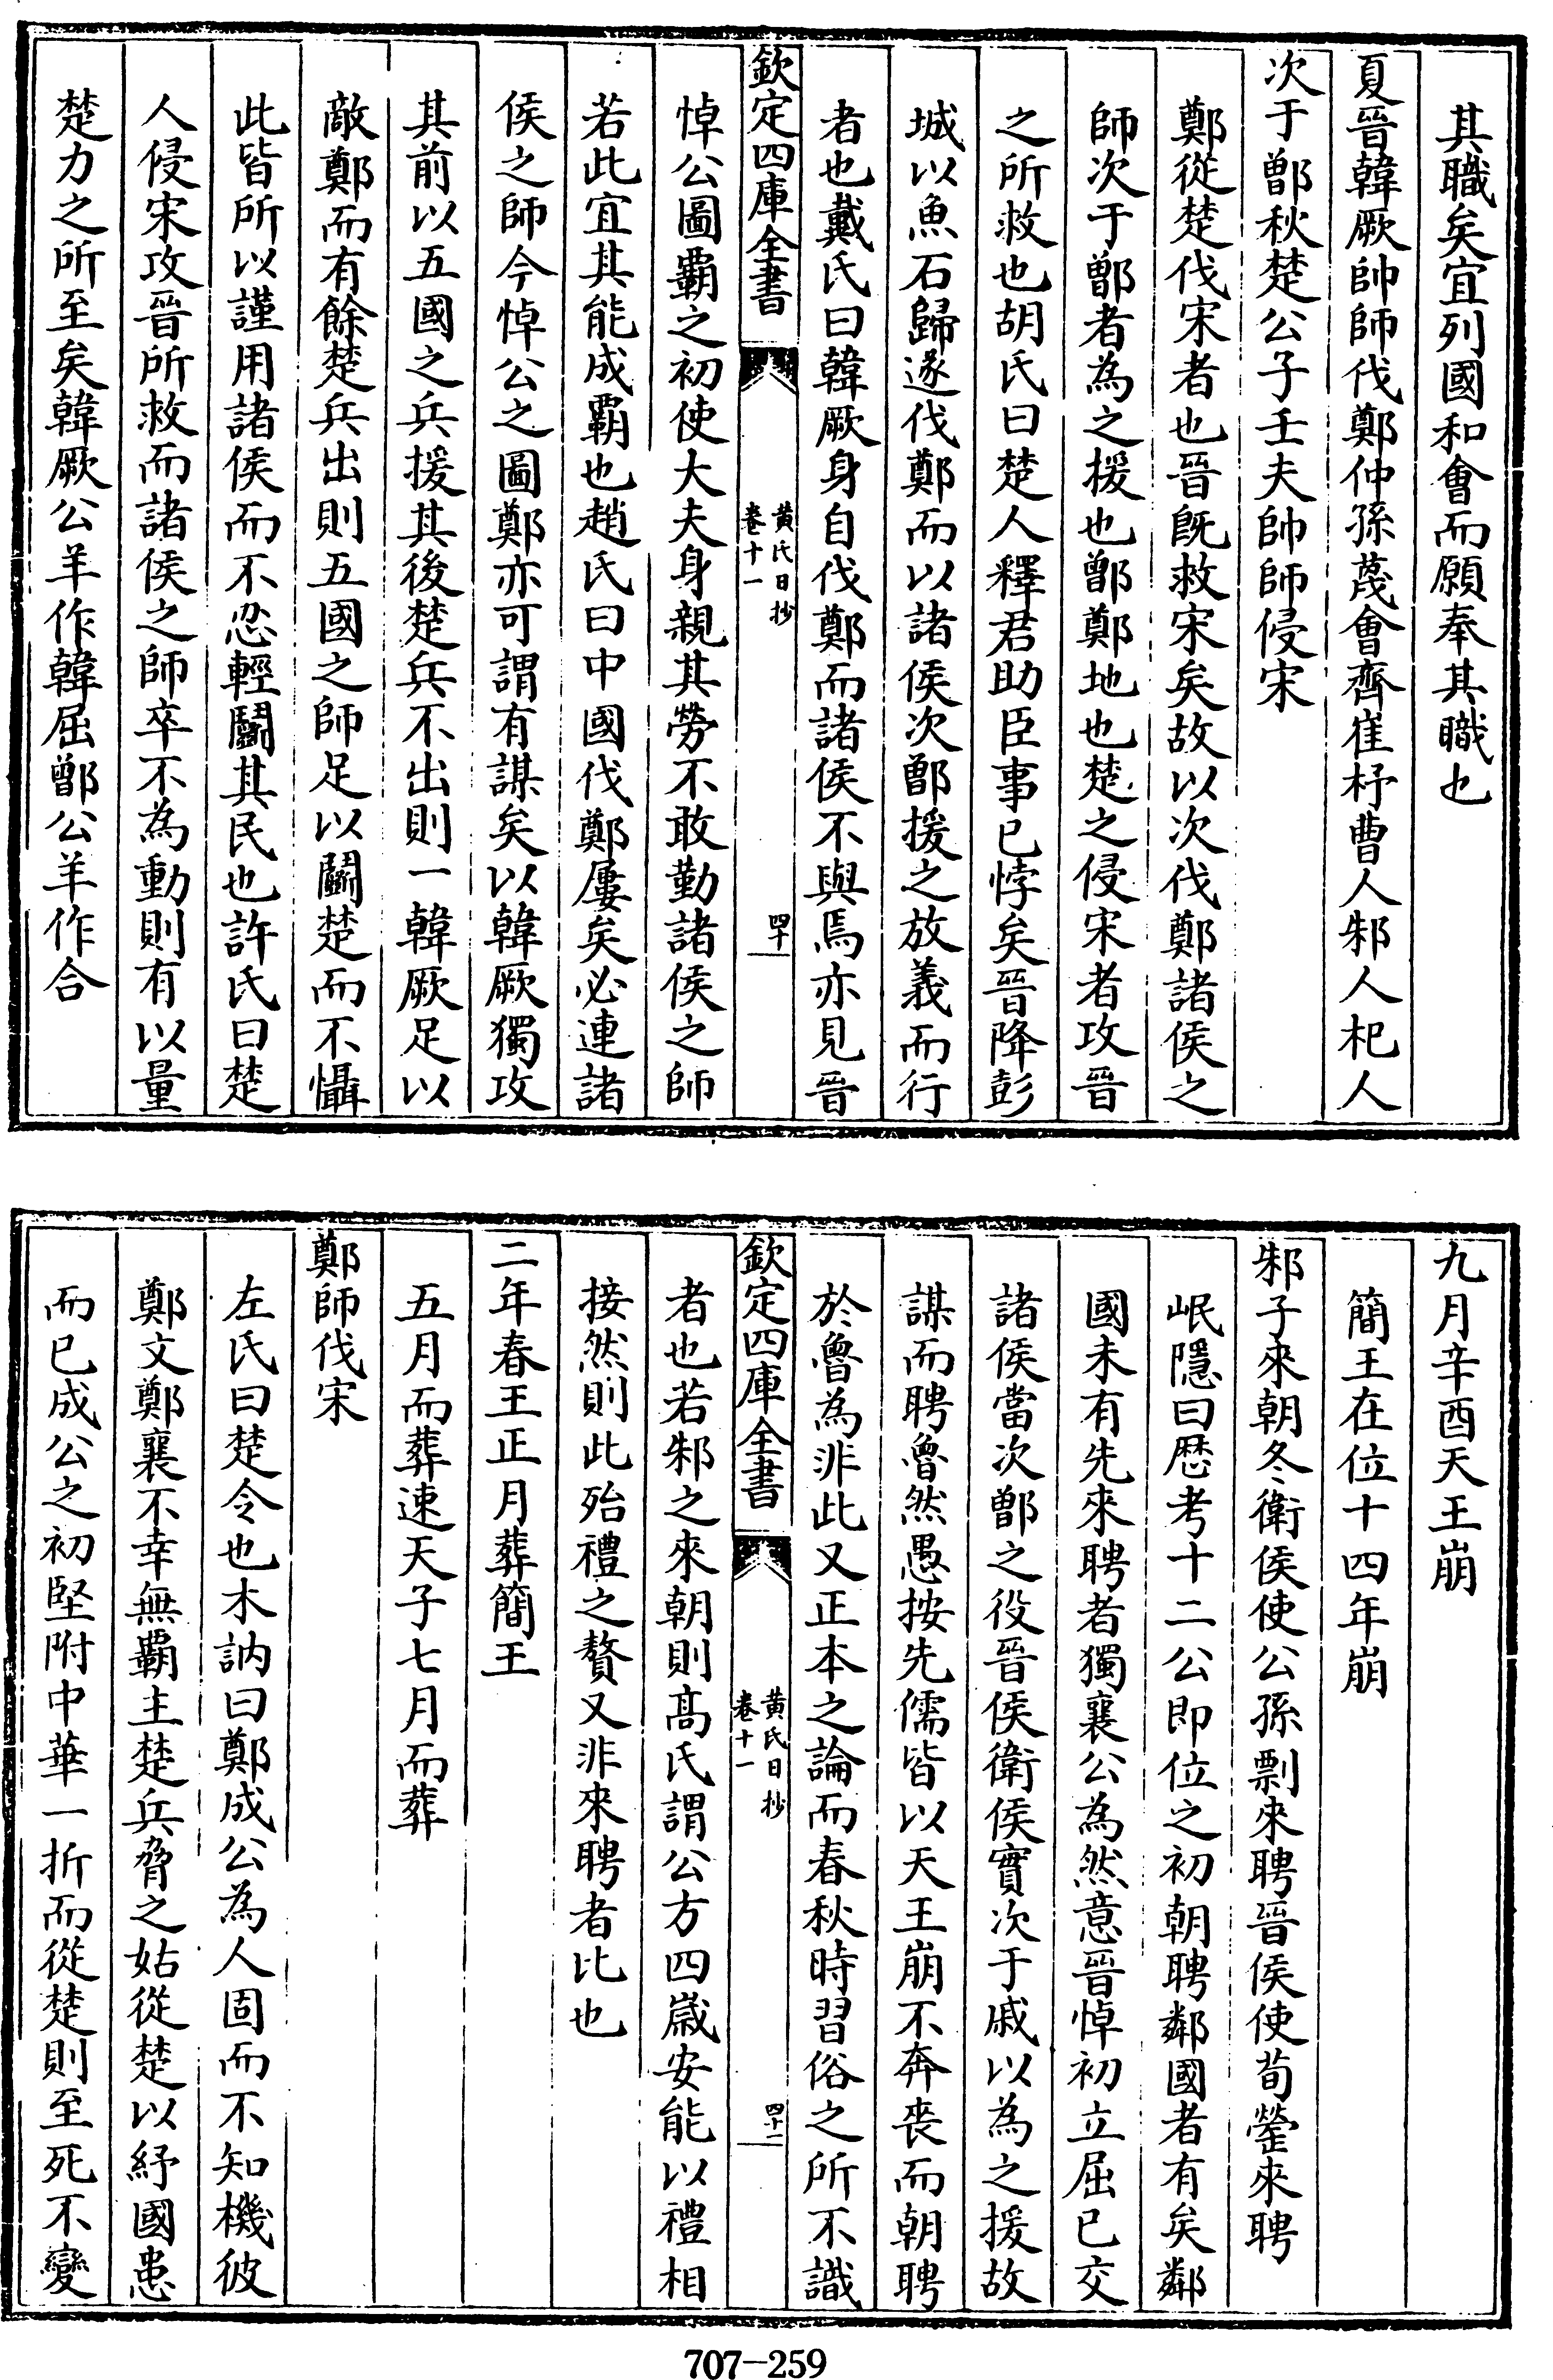 其職矣宜列國和會而願奉其職也
夏晉韓厥帥師伐鄭仲孫蔑會齊崔杼曹人邾人杞人
次于鄫秋楚公子壬夫帥師侵宋
鄭從楚伐宋者也晉既救宋矣故以次伐鄭諸侯之
師次于鄫者為之援也鄫鄭地也楚之侵宋者攻晉
之所救也胡氏曰楚人釋君助臣事已悖矣晉降彭
城以魚石歸遂伐鄭而以諸侯次鄫援之放義而行
者也戴氏曰韓厥身自伐鄭而諸侯不與焉亦見晉
欽定四庫全書
黃氏日抄
卷十一
四十
悼公圖覇之初使大夫身親其勞不敢勤諸侯之師
若此宜其能成覇也趙氏曰中國伐鄭屢矣必連諸
侯之師今悼公之圖鄭亦可謂有謀矣以韓厥獨攻
其前以五國之兵援其後楚兵不出則一韓厥足以
敵鄭而有餘楚兵出則五國之師足以鬭楚而不懾
此皆所以謹用諸侯而不忍輕鬭其民也許氏曰楚
人侵宋攻晉所救而諸侯之師卒不為動則有以量
楚力之所至矣韓厥公羊作韓屈鄫公羊作合
九月辛酉天王崩
簡王在位十四年崩
邾子來朝冬衛侯使公孫剽來聘晉侯使荀罃來聘
岷隱曰歴考十二公即位之初朝聘鄰國者有矣鄰
國未有先來聘者獨襄公為然意晉悼初立屈已交
諸侯當次鄫之役晉侯衛侯實次于戚以為之援故
謀而聘魯然愚按先儒皆以天王崩不奔喪而朝聘
於魯為非此又正本之論而春秋時習俗之所不識
欽定四庫全書
黃氏日抄
卷十一
四十一
者也若邾之來朝則髙氏謂公方四嵗安能以禮相
接然則此殆禮之贅又非來聘者比也
二年春王正月葬簡王
五月而葬速天子七月而葬
鄭師伐宋
左氏曰楚令也木訥曰鄭成公為人固而不知機彼
鄭文鄭襄不幸無覇主楚兵脅之姑從楚以紓國患
而已成公之初堅附中華一折而從楚則至死不變
707-259